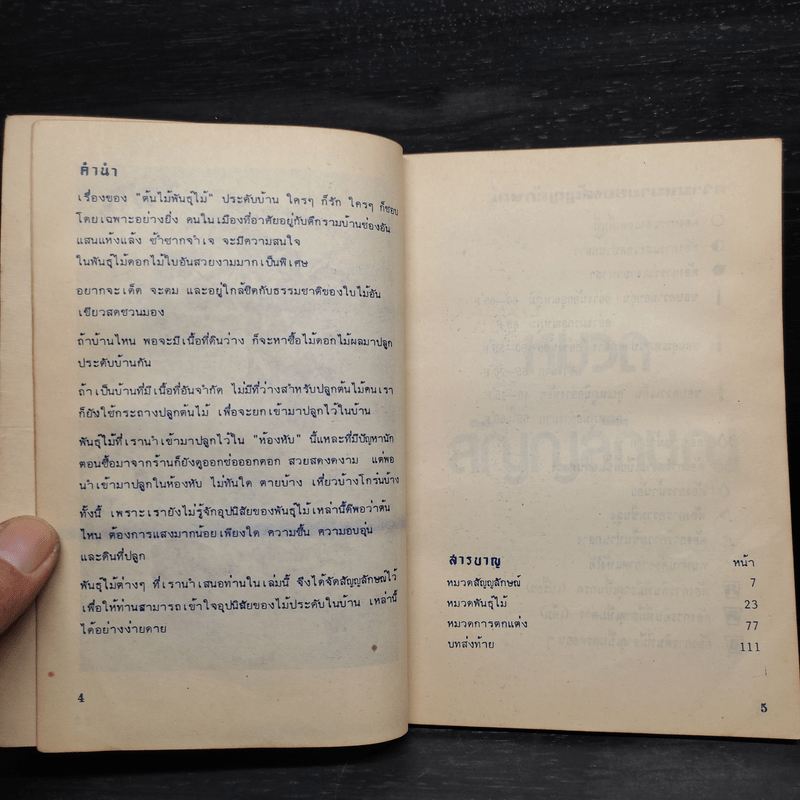 คำนำ
เรื่องของ "ต้นไม้พันธุ์ไม้" ประดับบ้าน ใครๆ ก็รัก ใครๆ ก็ชอบ
โดยเฉพาะอย่างยิ่ง คนในเมืองที่อาศัยอยู่กับตึกรามบ้านช่องอัน
แสนแห้งแล้ง ซ้ำซากจำเจ จะมีความสนใจ
ในพันธุ์ไม้ดอกไม้ใบอันสวยงามมากเป็นพิเศษ
อยากจะเด็ด จะดม และอยู่ใกล้ชิดกับธรรมชาติของใบไม้อัน
เขียวสดชวนมอง
ถ้าบ้านไหน พอจะมีเนื้อที่ดินว่าง ก็จะหาซื้อไม้ดอกไม้ผลมาปลูก
ประดับบ้านกัน
ถ้า เป็นบ้านที่มีเนื้อที่อันจำกัด ไม่มีที่ว่างสำหรับปลูกต้นไม้คนเรา
ก็ยังใช้กระถางปลูกต้นไม้ เพื่อจะยกเข้ามาปลูกไว้ในบ้าน
พันธุ์ไม้ที่เรานำเข้ามาปลูกไว้ใน "ห้องหับ" นี้แหละที่มีปัญหานัก
ตอนซื้อมาจากร้านก็ยังดูออกช่อออกดอก สวยสดงดงาม แต่พอ
นำเข้ามาปลูกในห้องหับ ไม่ทันใด ตายบ้าง เหี่ยวบ้างโกร๋นบ้าง
ทั้งนี้ เพราะเรายังไม่รู้จักอุปนิสัยของพันธุ์ไม้เหล่านี้ดีพอว่าต้น
ไหน ต้องการแสงมากน้อยเพียงใด ความชื้น ความอบอุ่น
และดินที่ปลูก
พันธุ์ไม้ต่างๆ ที่เรานำเสนอท่านในเล่มนี้ จึงได้จัดสัญญลักษณ์ไว้
เพื่อให้ท่านสามารถเข้าใจอุปนิสัยของไม้ประดับในบ้าน เหล่านี้
ได้อย่างง่ายดาย
4
สารบาญ หน้า
หมวดสัญญลักษณ์ 7
หมวดพันธุ์ไม้ 23
หมวดการตกแต่ง 77
บทส่งท้าย 111
5